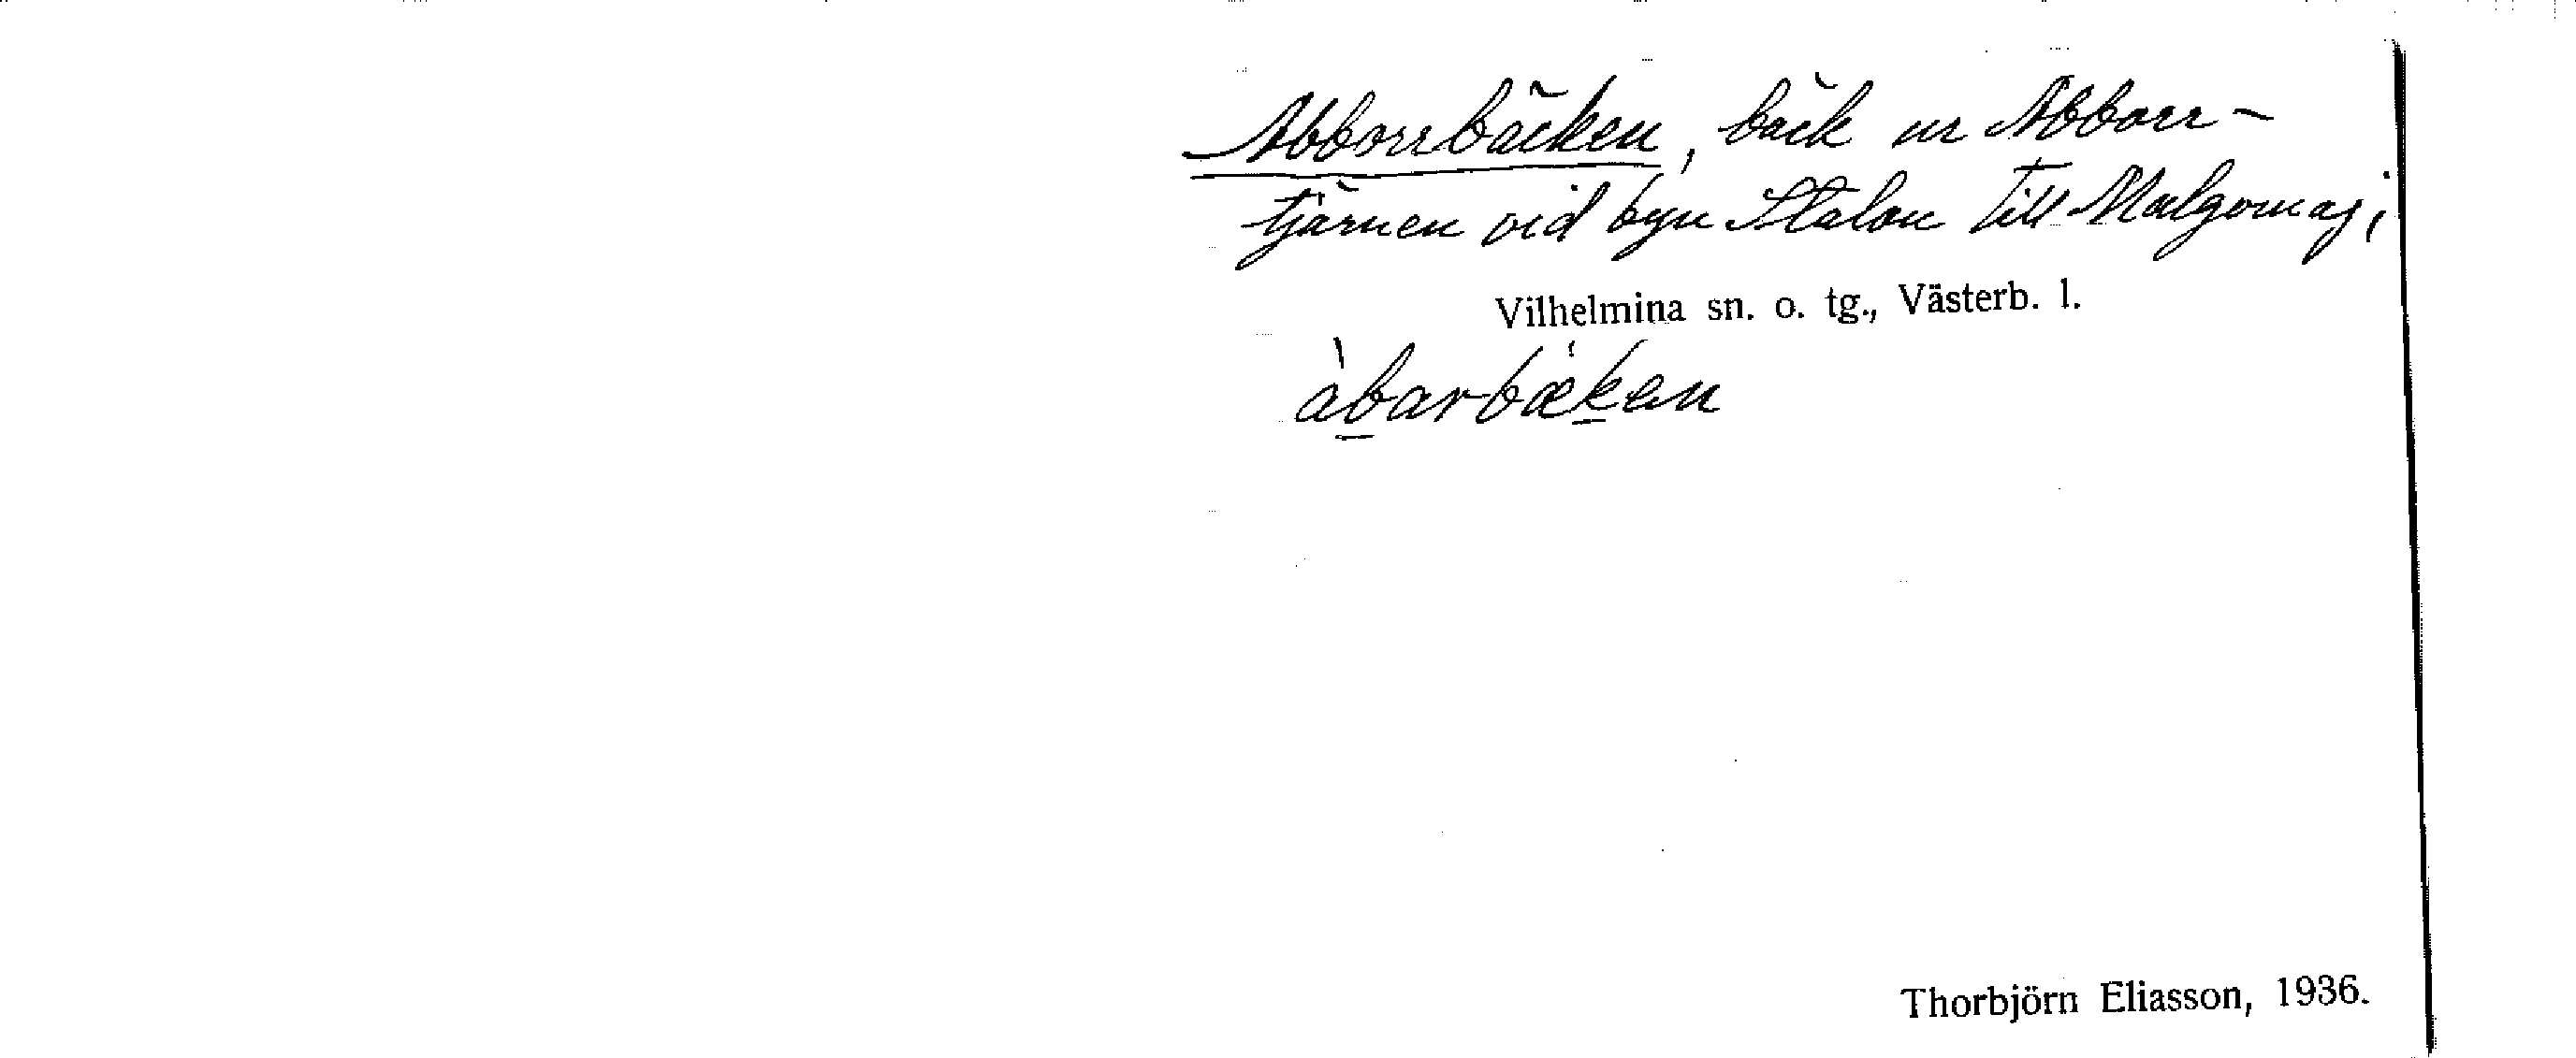 Abborrbäcken, bäck ur Abborr-
tjärnen vid byn Stalon till Malgomaj;
Vilhelmina sn. o. tg., Västerb. l.
àbarbæ̀ken
Thorbjörn Eliasson, 1936.